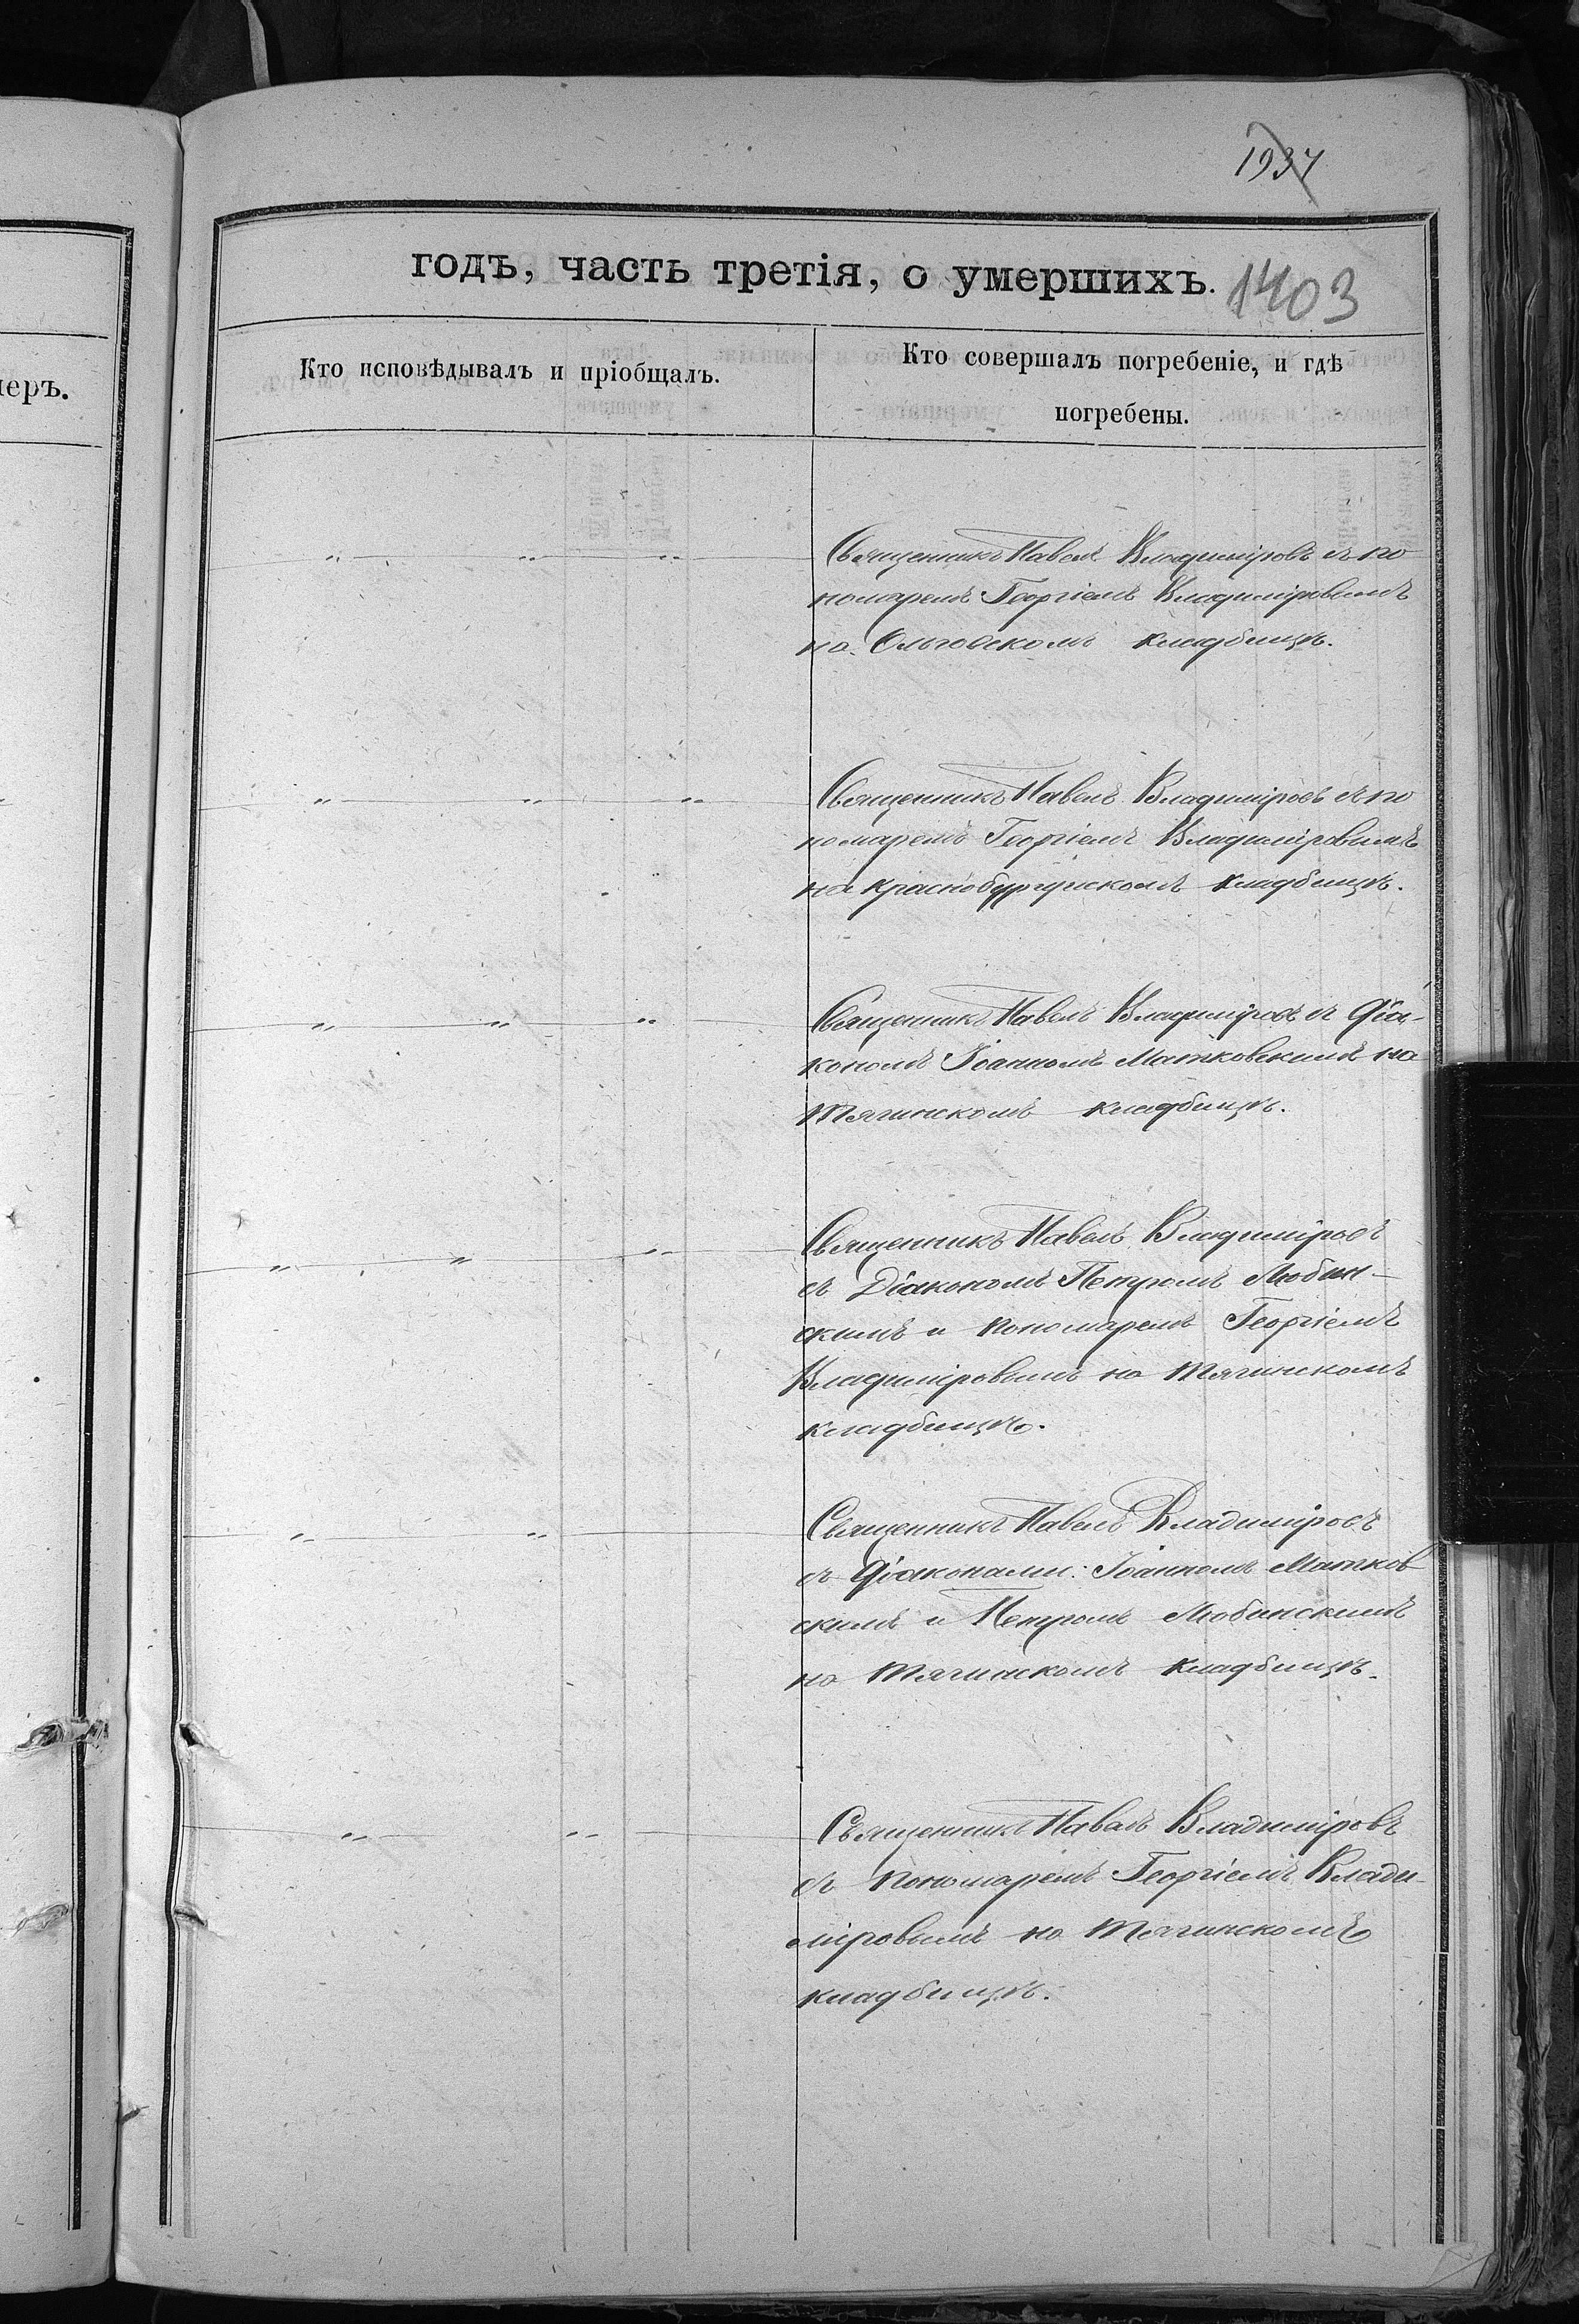 1937
годъ, часть третія, о умершихъ.
1403
Кто исповѣдывалъ и пріобщалъ.
Кто совершалъ погребеніе, и гдѣ
погребены.
меръ.
Священникъ Павелъ Владиміровъ съ по
номаремъ Георгіемъ Владиміровымъ
на Ольговскомъ кладбищѣ.
Священникъ Павелъ Владиміровъ съ по
номаремъ Георгіемъ Владиміровымъ
на кладбищѣ.
Священникъ Павелъ Владиміровъ съ Діа-
кономъ Іоанномъ Матковскимъ на
Тягинскомъ кладбищѣ.
Священникъ Павелъ Владиміровъ
съ Діакономъ Петромъ Любин-
скимъ и Пономаремъ Георгіемъ
Владиміровымъ на Тягинскомъ
кладбищѣ.
Священникъ Павелъ Владиміровъ
съ Діаконами: Іоанномъ Матков
скимъ и Петромъ Любинскимъ
на Тягинскомъ кладбищѣ.
Священникъ Павелъ Владиміровъ
съ Пономаремъ Георгіемъ Влади-
міровымъ на Тягинскомъ
кладбищѣ.